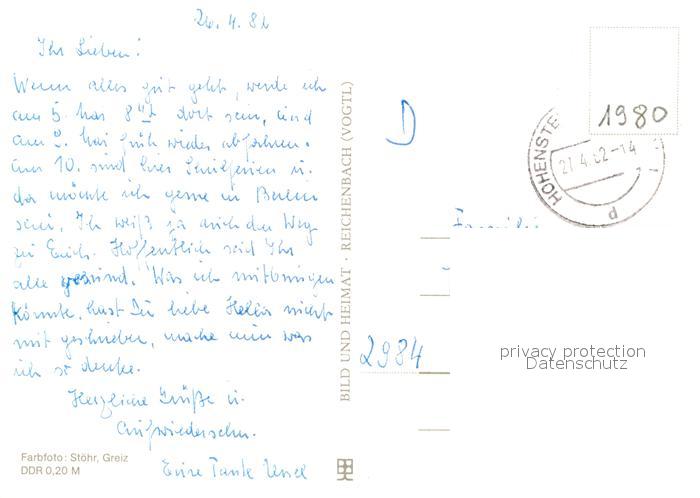 26.4.82
Ihr Lieben!
Wenn alles gut geht, werde ich
am 5. Mai 8 Uhr dort sein, und
am 9. Mai früh wieder abfahren.
Am 10. sind hier Schulferien u.
da möchte ich gerne in Berlin
sein. Ich weiß ja auch den Weg
zu Euch. Hoffentlich seid Ihr
alle gesund. Was ich mitbringen
könnte, hast Du liebe nicht
mit geschrieben, mache nun was
ich so denke.
Herzliche Grüße u.
Aufwiedersehn.
Eure Tante
Farbfoto: Stöhr, Greiz
DDR 0,20 M
BILD UND HEIMAT · REICHENBACH (VOGTL)
D
1980
HOHENSTE
27.4.82-14
d
Familie
2984
privacy protection
Datenschutz